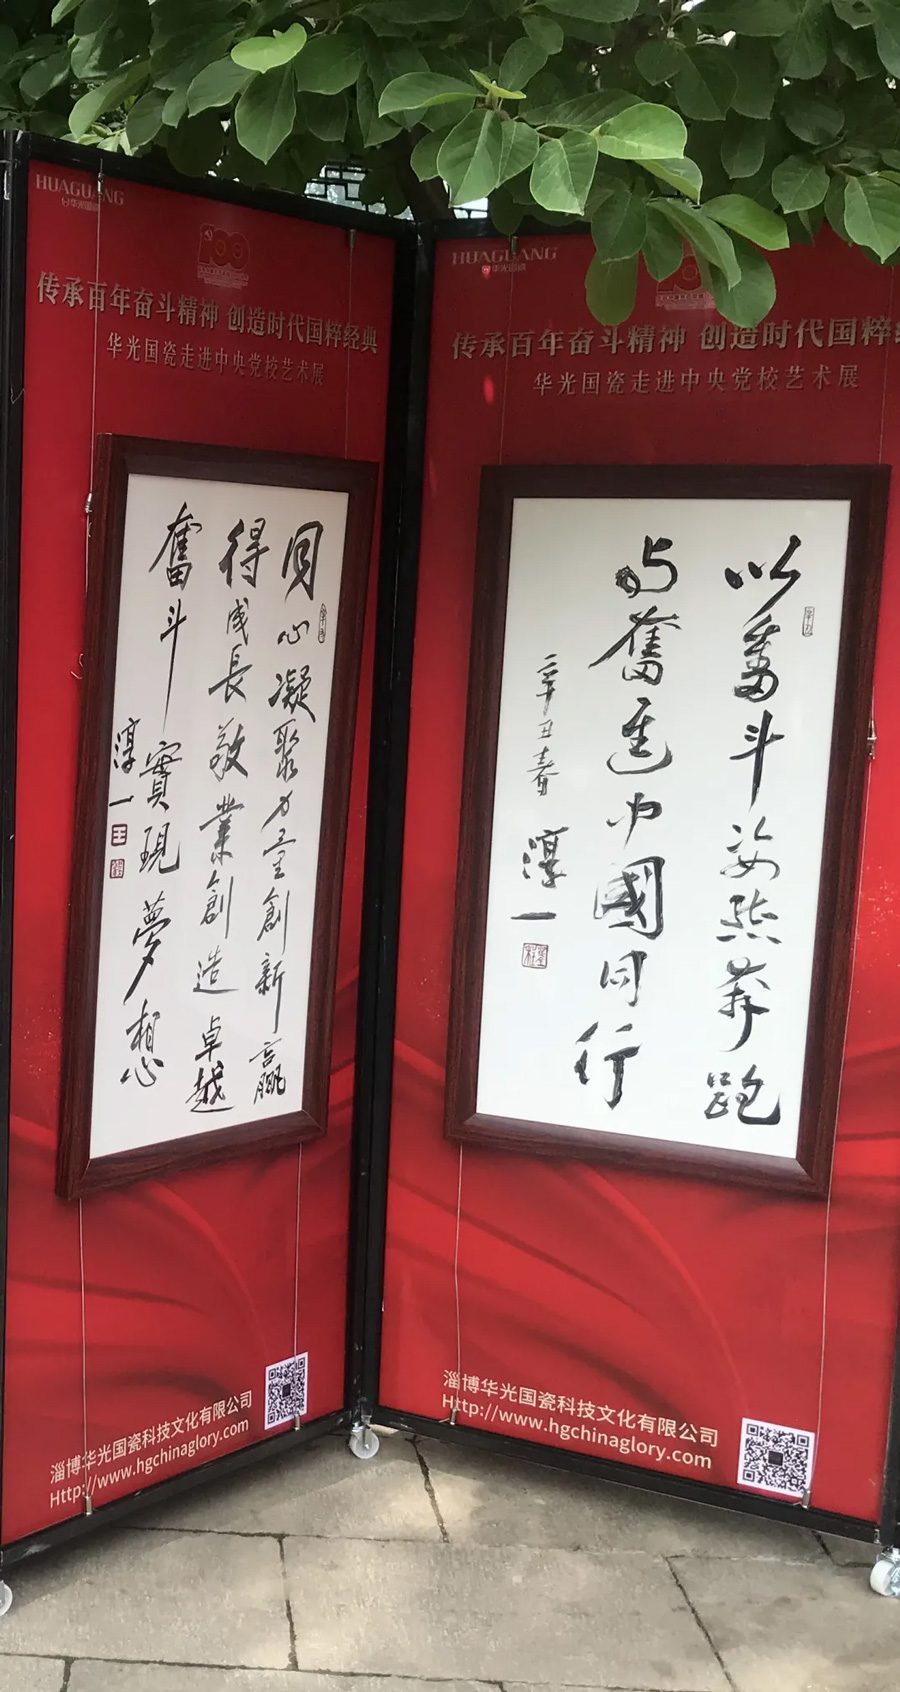 HUAGUANG
华光国瓷
100
传承百年奋斗精神 创造时代国粹经典
华光国瓷走进中央党校艺术展
同心凝聚力量創新贏
得成長敬業創造卓越
奮斗實現夢想
淳一
淄博华光国瓷科技文化有限公司
Http://www.hgchinaglory.com
HUAGUANG
华光国瓷
传承百年奋斗精神 创造时代国粹
华光国瓷走进中央党校艺术展
以奮斗姿態奔跑
与奮進中國同行
辛丑春
淳一
淄博华光国瓷科技文化有限公司
Http://www.hgchinaglory.com